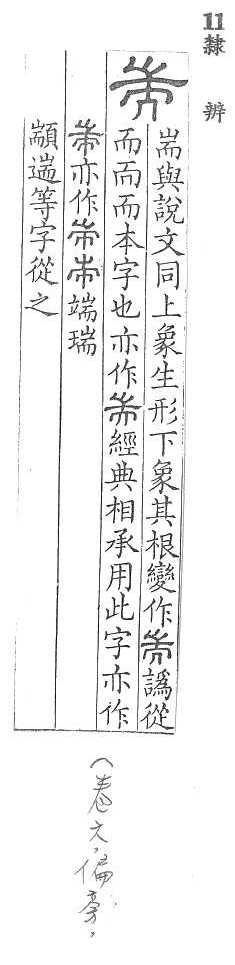 11 隸辨
耑與說文同上象生形下象其根變作譌從
而而本字也亦作經典相承用此字亦作
亦作端瑞
顓遄等字從之
(卷六,偏旁,